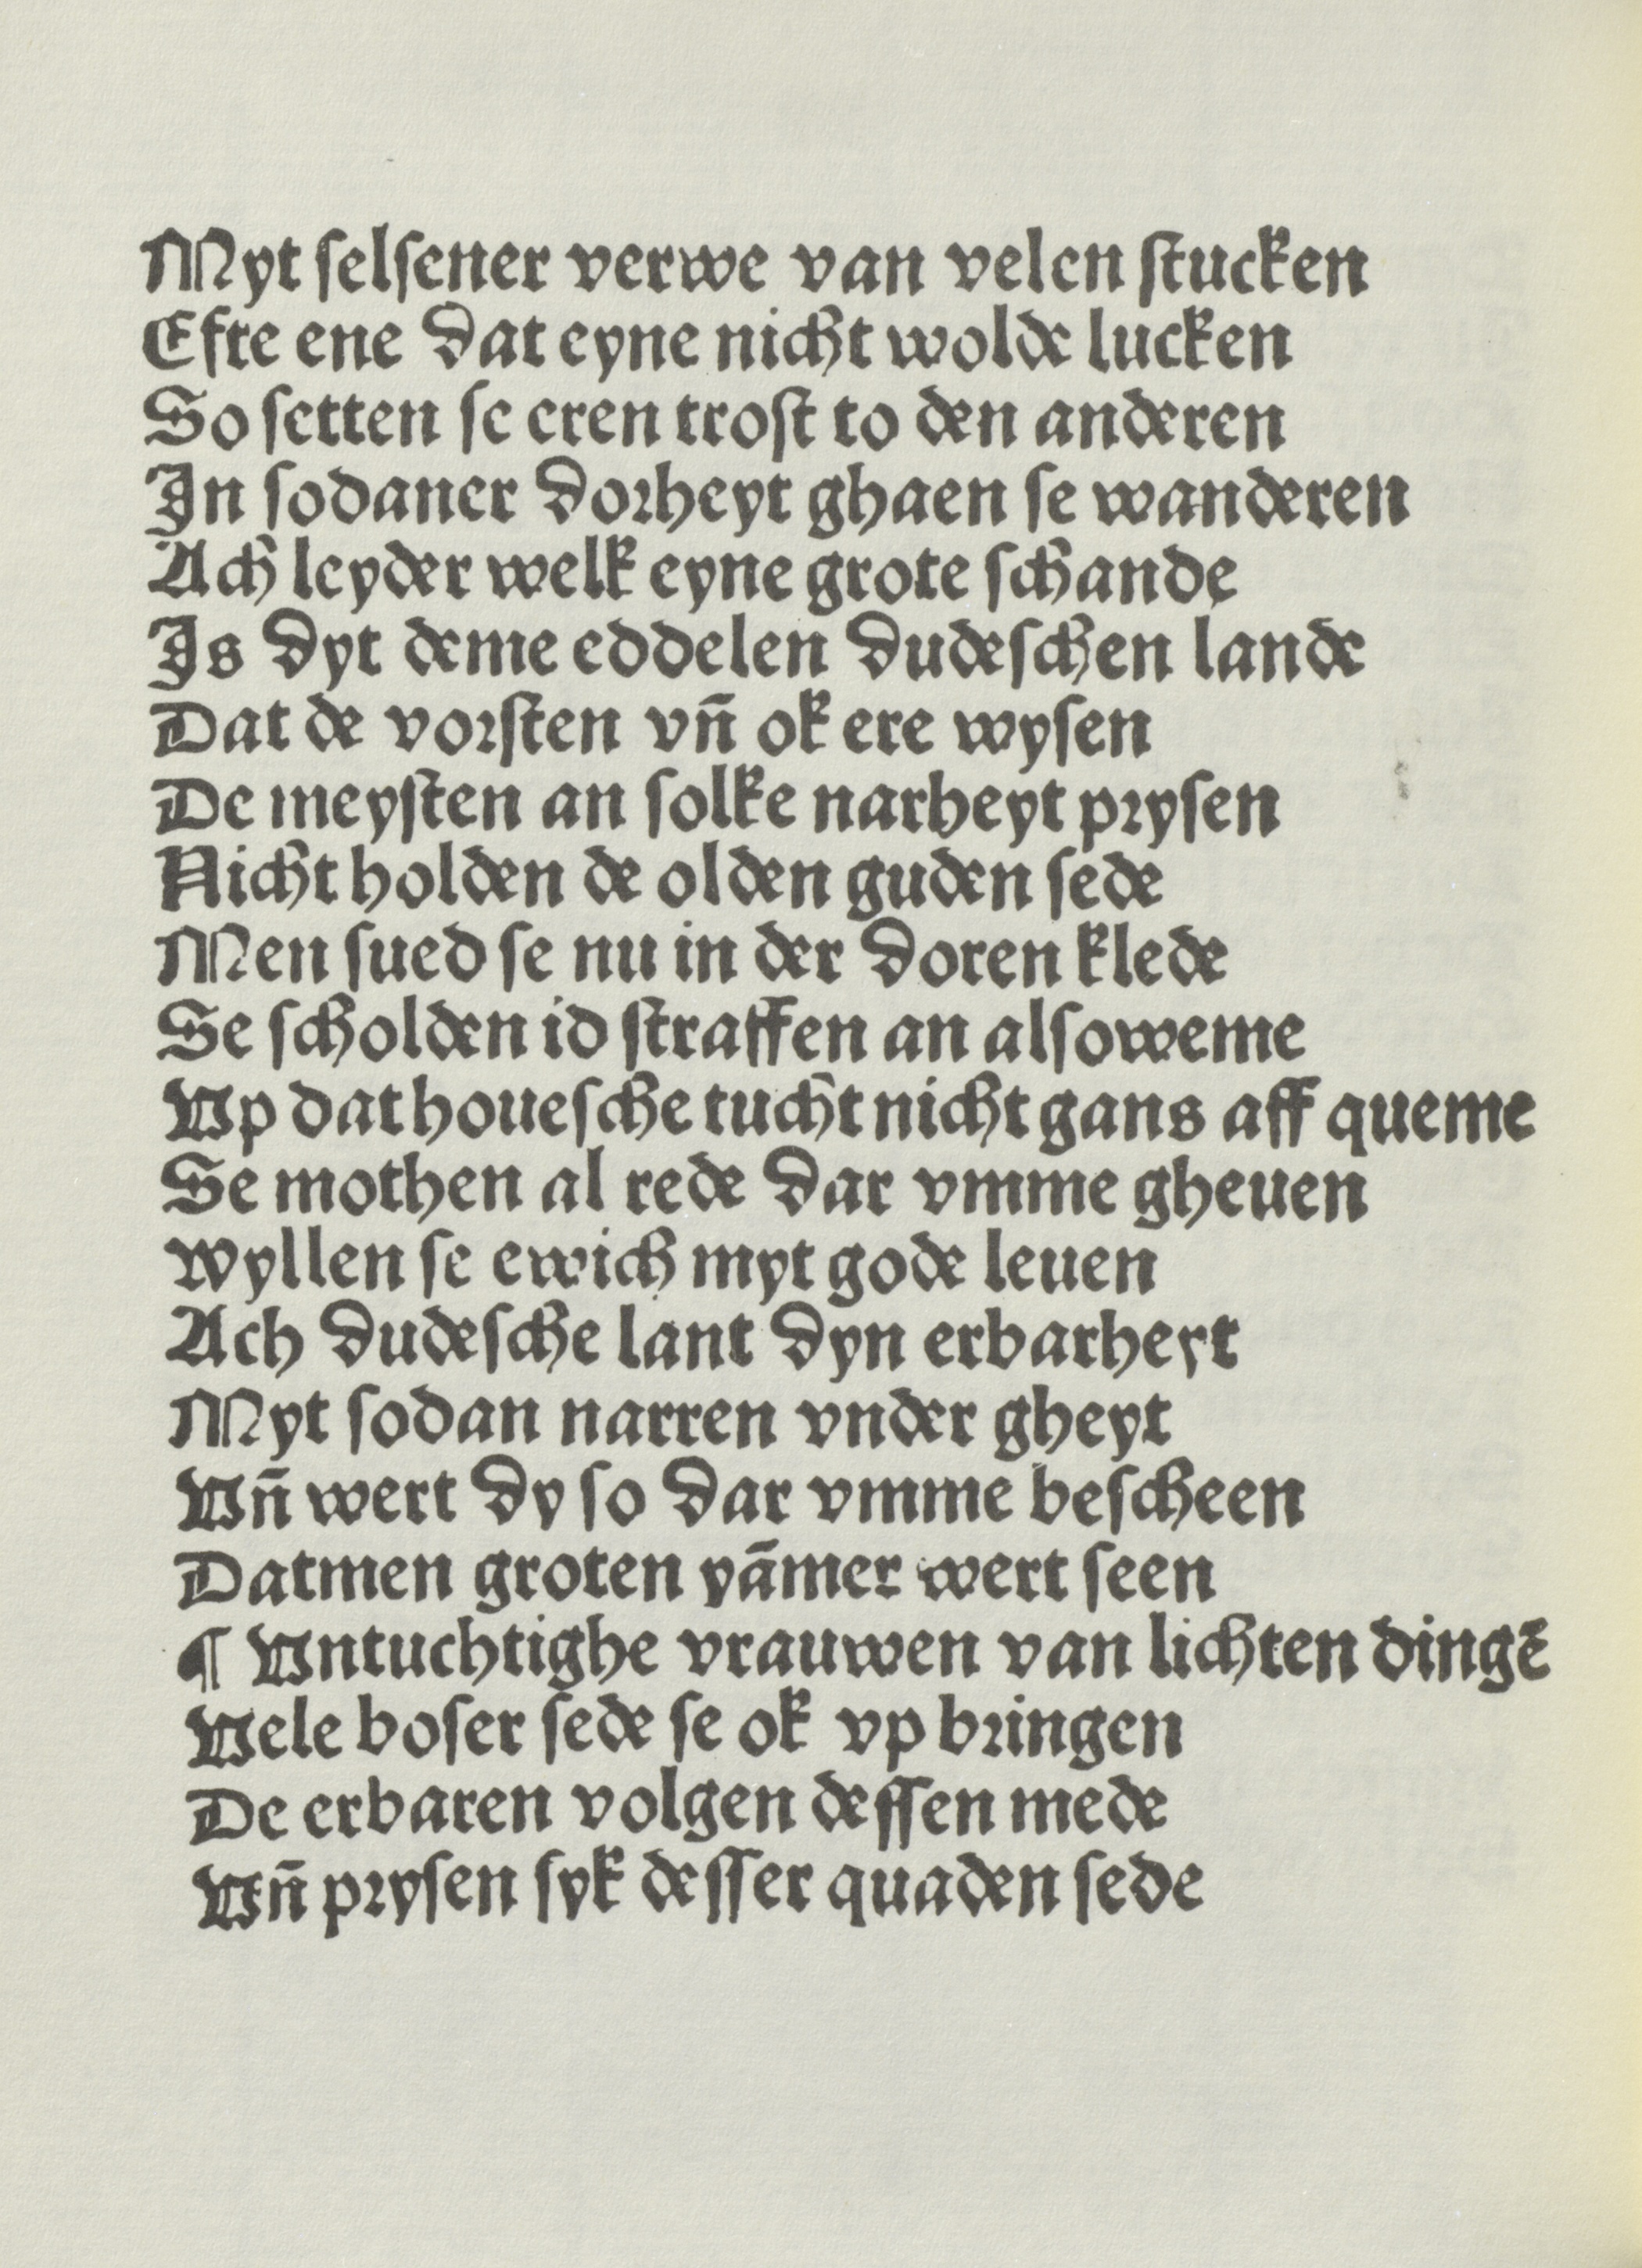 Myt ſelſener verwe van velen ſtucken
Efte ene dat eyne nicht wolde lucken
So ſetten ſe eren troſt to den anderen
In ſodaner dorheyt ghaen ſe wanderen
Ach leyder welk eyne grote ſchande
Is dyt deme eddelen dudeſchen lande
Dat de vorſten vn̄ ok ere wyſen
De meyſten an ſolke narheyt pryſen
Nicht holden de olden guden ſede
Men ſued ſe nu in der doren klede
Se ſcholden id ſtraffen an alſoweme
Vp dat houeſche tucht nicht gans aff queme
Se mothen al rede dar vmme gheuen
wyllen ſe ewich myt gode leuen
Ach dudeſche lant dyn erbarheyt
Myt ſodan narren vnder gheyt
Vn̄ wert dy ſo dar vmme beſcheen
Datmen groten yāmer wert ſeen
¶ Vntuchtighe vrauwen van lichten dingē
Vele boſer ſede ſe ok vp bringen
De erbaren volgen deſſen mede
Vn̄ pryſen ſyk deſſer quaden ſede